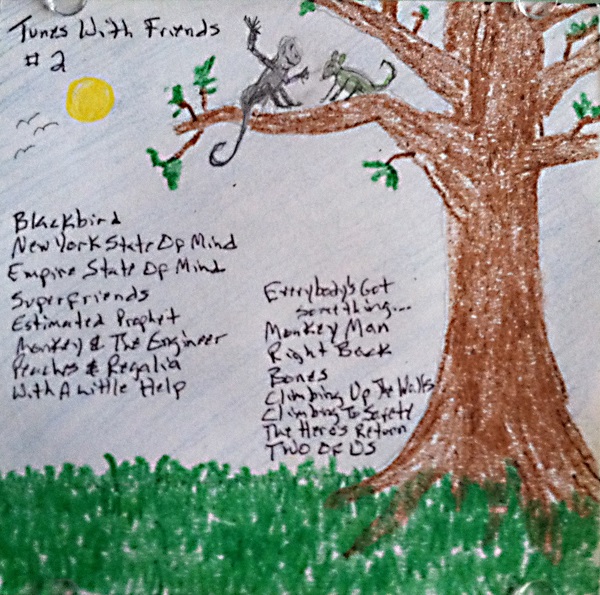 Tunes With Friends
# 2
Blackbird
New York State Of Mind
Empire State Of Mind
Superfriends
Estimated Prophet
Monkey & The Engineer
Peaches & Regalia
With A Little Help
Everybody's Got
something...
Monkey Man
Right Back
Bones
Climbing Up The Walls
Climbing To Safety
The Hero's Return
TWO OF US